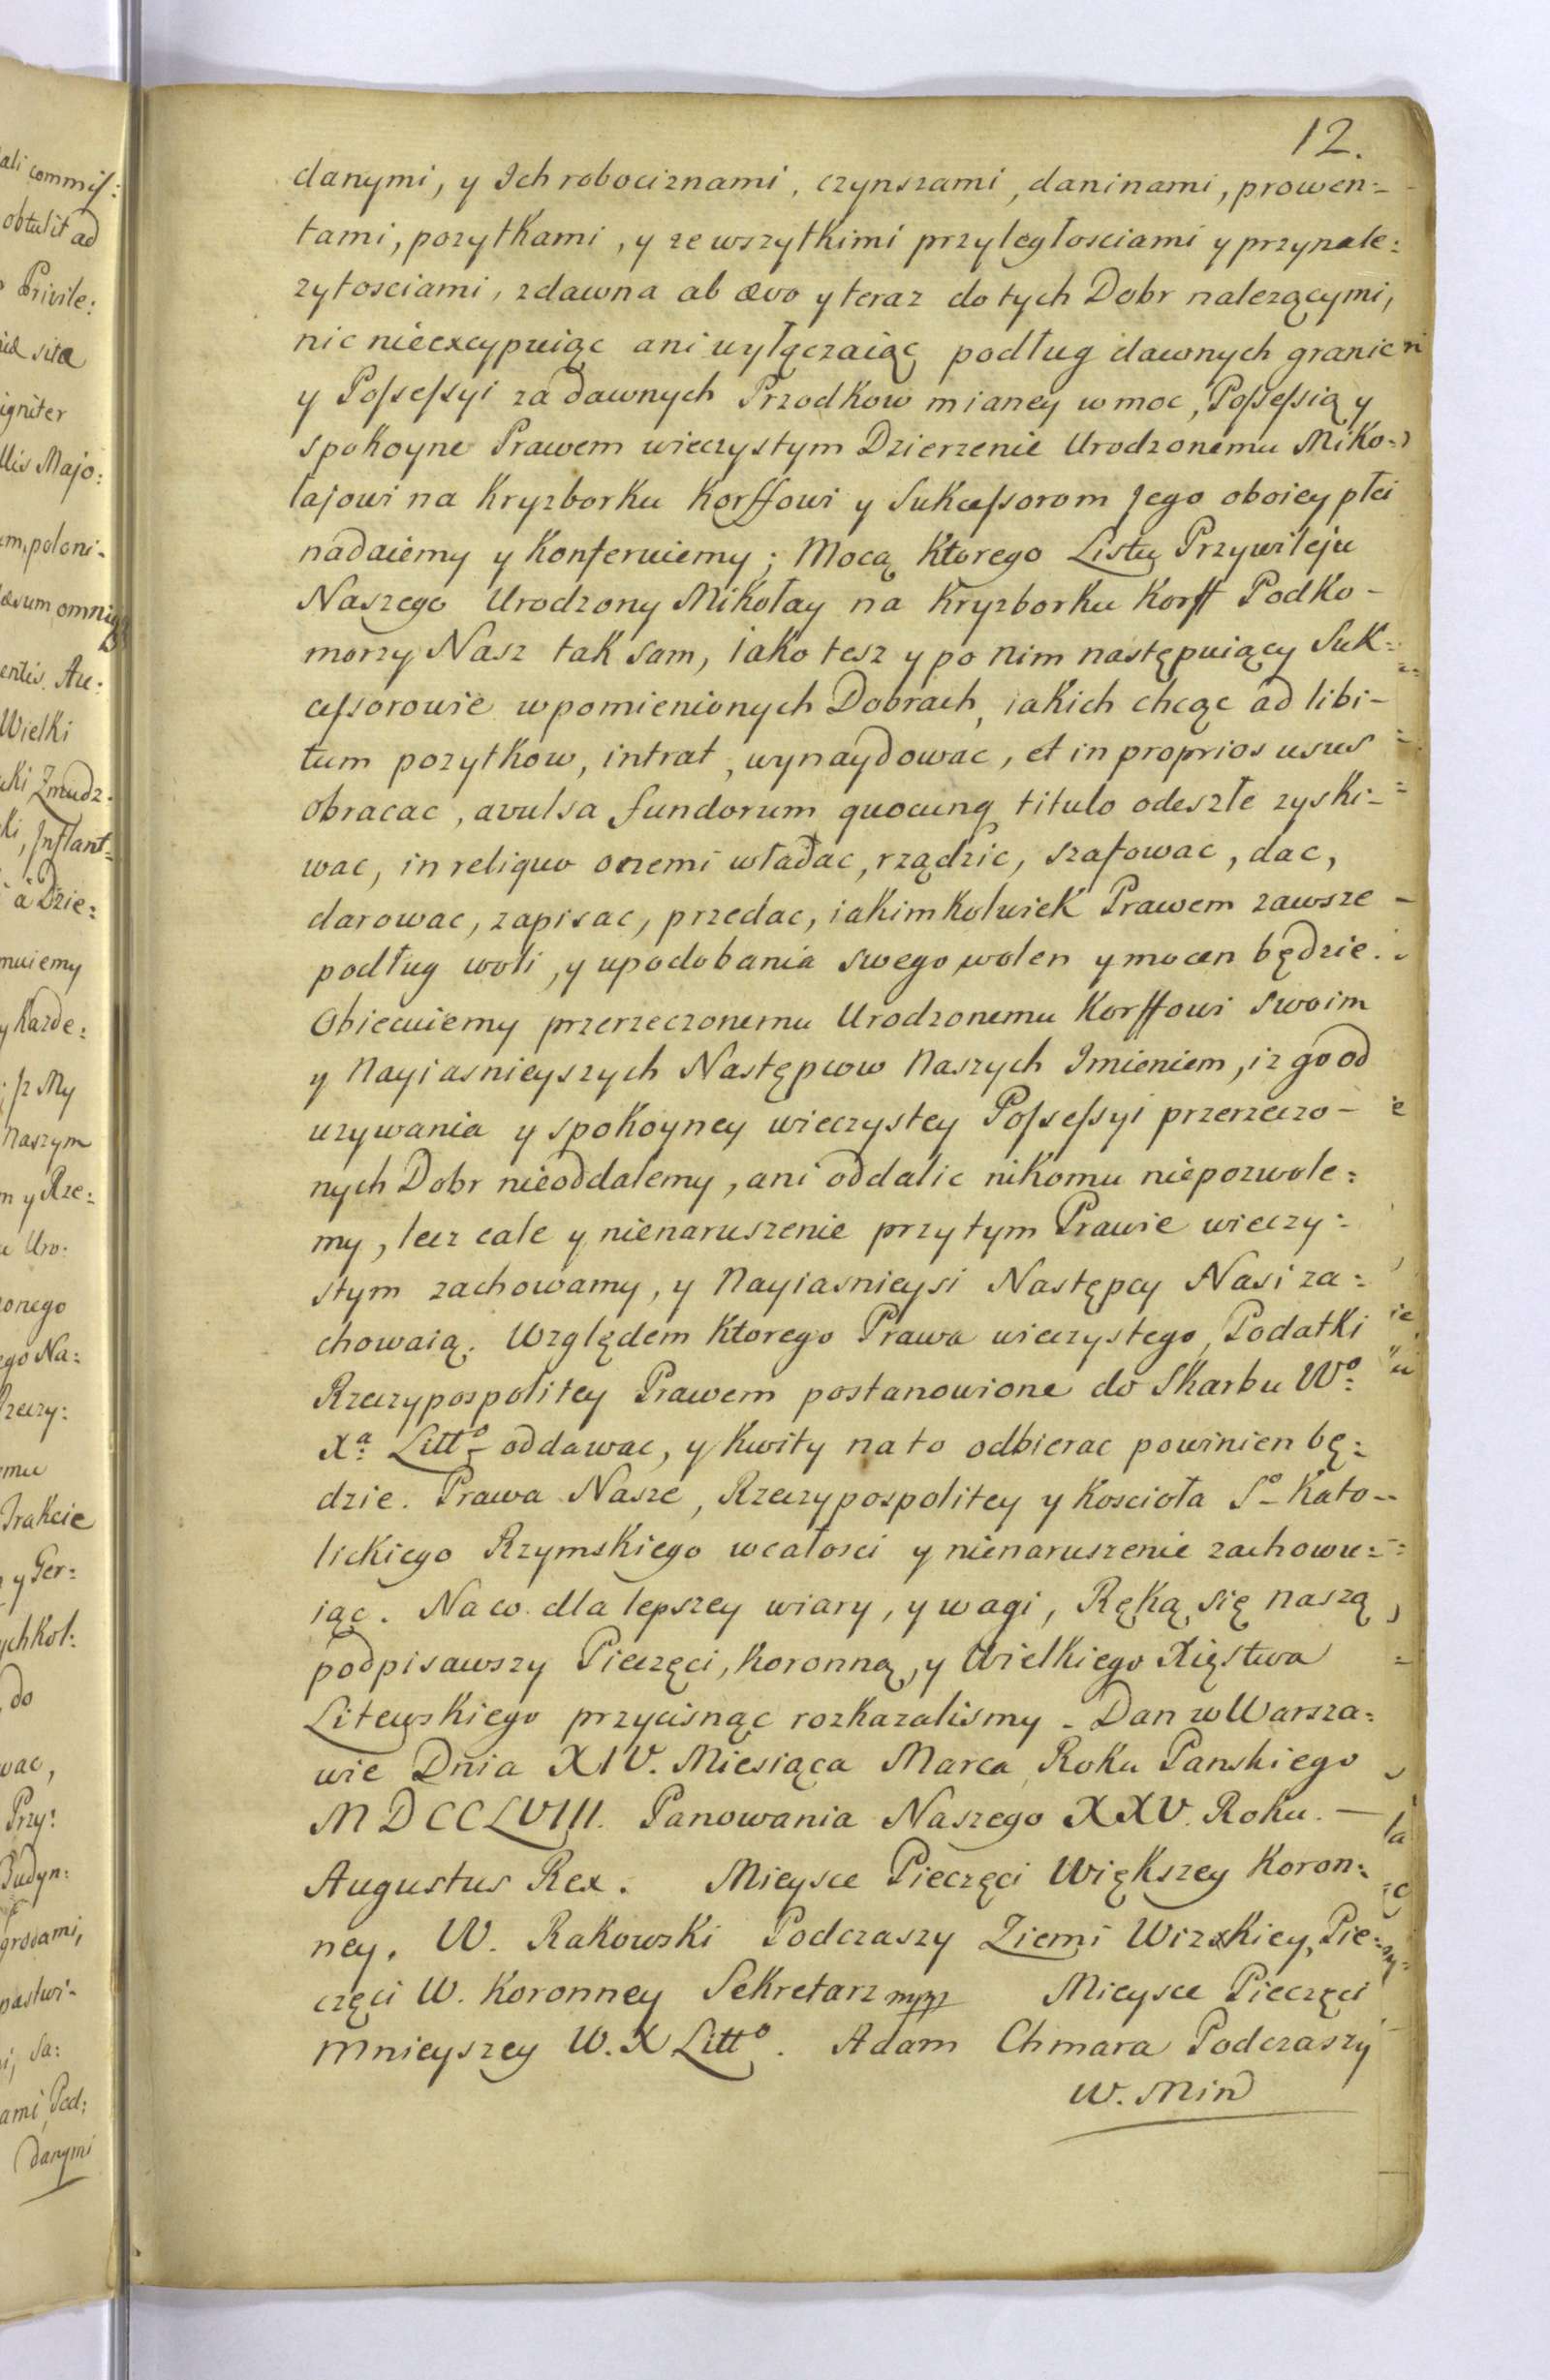 12.
danymi, y Ich robociznami, czynszami, daninami, prowen:
tami, pozytkami, y ze wszytkimi przyległosciami y przynale:
zytosciami, zdawna ab ævo y teraz do tych Dobr nalezącymi,
nic nieexcypuiąc ani wyłączaiąc podług dawnych granic
y Poſseſsyi za dawnych Przodkow mianey w moc, Poſseſsią y
spokoyne Prawem wieczystym Dzierzenie Urodzonemu Miko:
łajowi na Kryzborku Korffowi y Sukceſsorom Jego oboiey płci
nadaiemy y Konferuiemy; Mocą Ktorego Listu Przywileju
Naszego Urodzony Mikołay na Kryzborku Korff Podko-
morzy Nasz tak sam, iako tesz y po nim następuiący Suk:
ceſsorowie w pomienionych Dobrach, iakich chcąc ad libi-
tum pozytkow, intrat, wynaydowac, et in proprios usus
obracac, avulsa fundorum quocunq titulo odeszłe zyski-
wac, in reliquo onemi władac, rządzic, szafowac, dac,
darowac, zapisac, przedac, iakimkolwiek Prawem zawsze
podług woli, y upodobania swego wolen y mocen będzie.
Obiecuiemy przerzeczonemu Urodzonemu Korffowi swoim
y Nayiasnieyszych Następcow Naszych Imieniem, iz go od
uzywania y spokoyney wieczystey Poſseſsyi przerzeczo-
nych Dobr nieoddalemy, ani oddalic nikomu niepozwole:
my, lecz cale y nienaruszenie przy tym Prawie wieczy:
stym zachowamy, y Nayiasnieysi Następcy Nasi za:
chowaią. Względem Ktorego Prawa wieczystego, Podatki
Rzeczypospolitey Prawem postanowione do Skarbu Wº:
Xª: Littº- oddawac, y Kwity na to odbierac powinien bę:
dzie. Prawa Nasze, Rzeczypospolitey y Koscioła Sº- Kato-
lickiego Rzymskiego wcałosci y nienaruszenie zachowu:
iąc. Na co dla lepszey wiary, y wagi, Ręką się naszą
podpisawszy Pieczęci, Koronną, y Wielkiego Xięstwa
Litewskiego przycisnąc rozkazalismy. Dan w Warsza:
wie Dnia XIV. Miesiąca Marca Roku Panskiego
MDCCLVIII. Panowania Naszego XXV. Roku. —
Augustus Rex. Mieysce Pieczęci Większey Koron:
ney. W. Rakowski Podczaszy Ziemi Wizkiey, Pie:
częci W. Koronney Sekretarz mpp Mieysce Pieczęci
Mnieyszey W. X Littº. Adam Chmara Podczaszy
W. Min